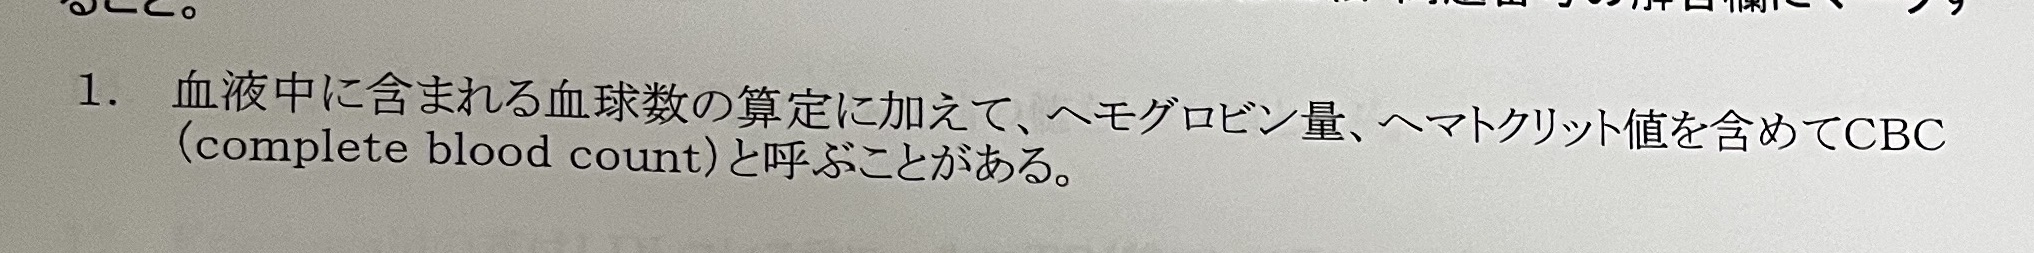 ること。
1. 血液中に含まれる血球数の算定に加えて、ヘモグロビン量、ヘマトクリット値を含めてCBC
(complete blood count)と呼ぶことがある。